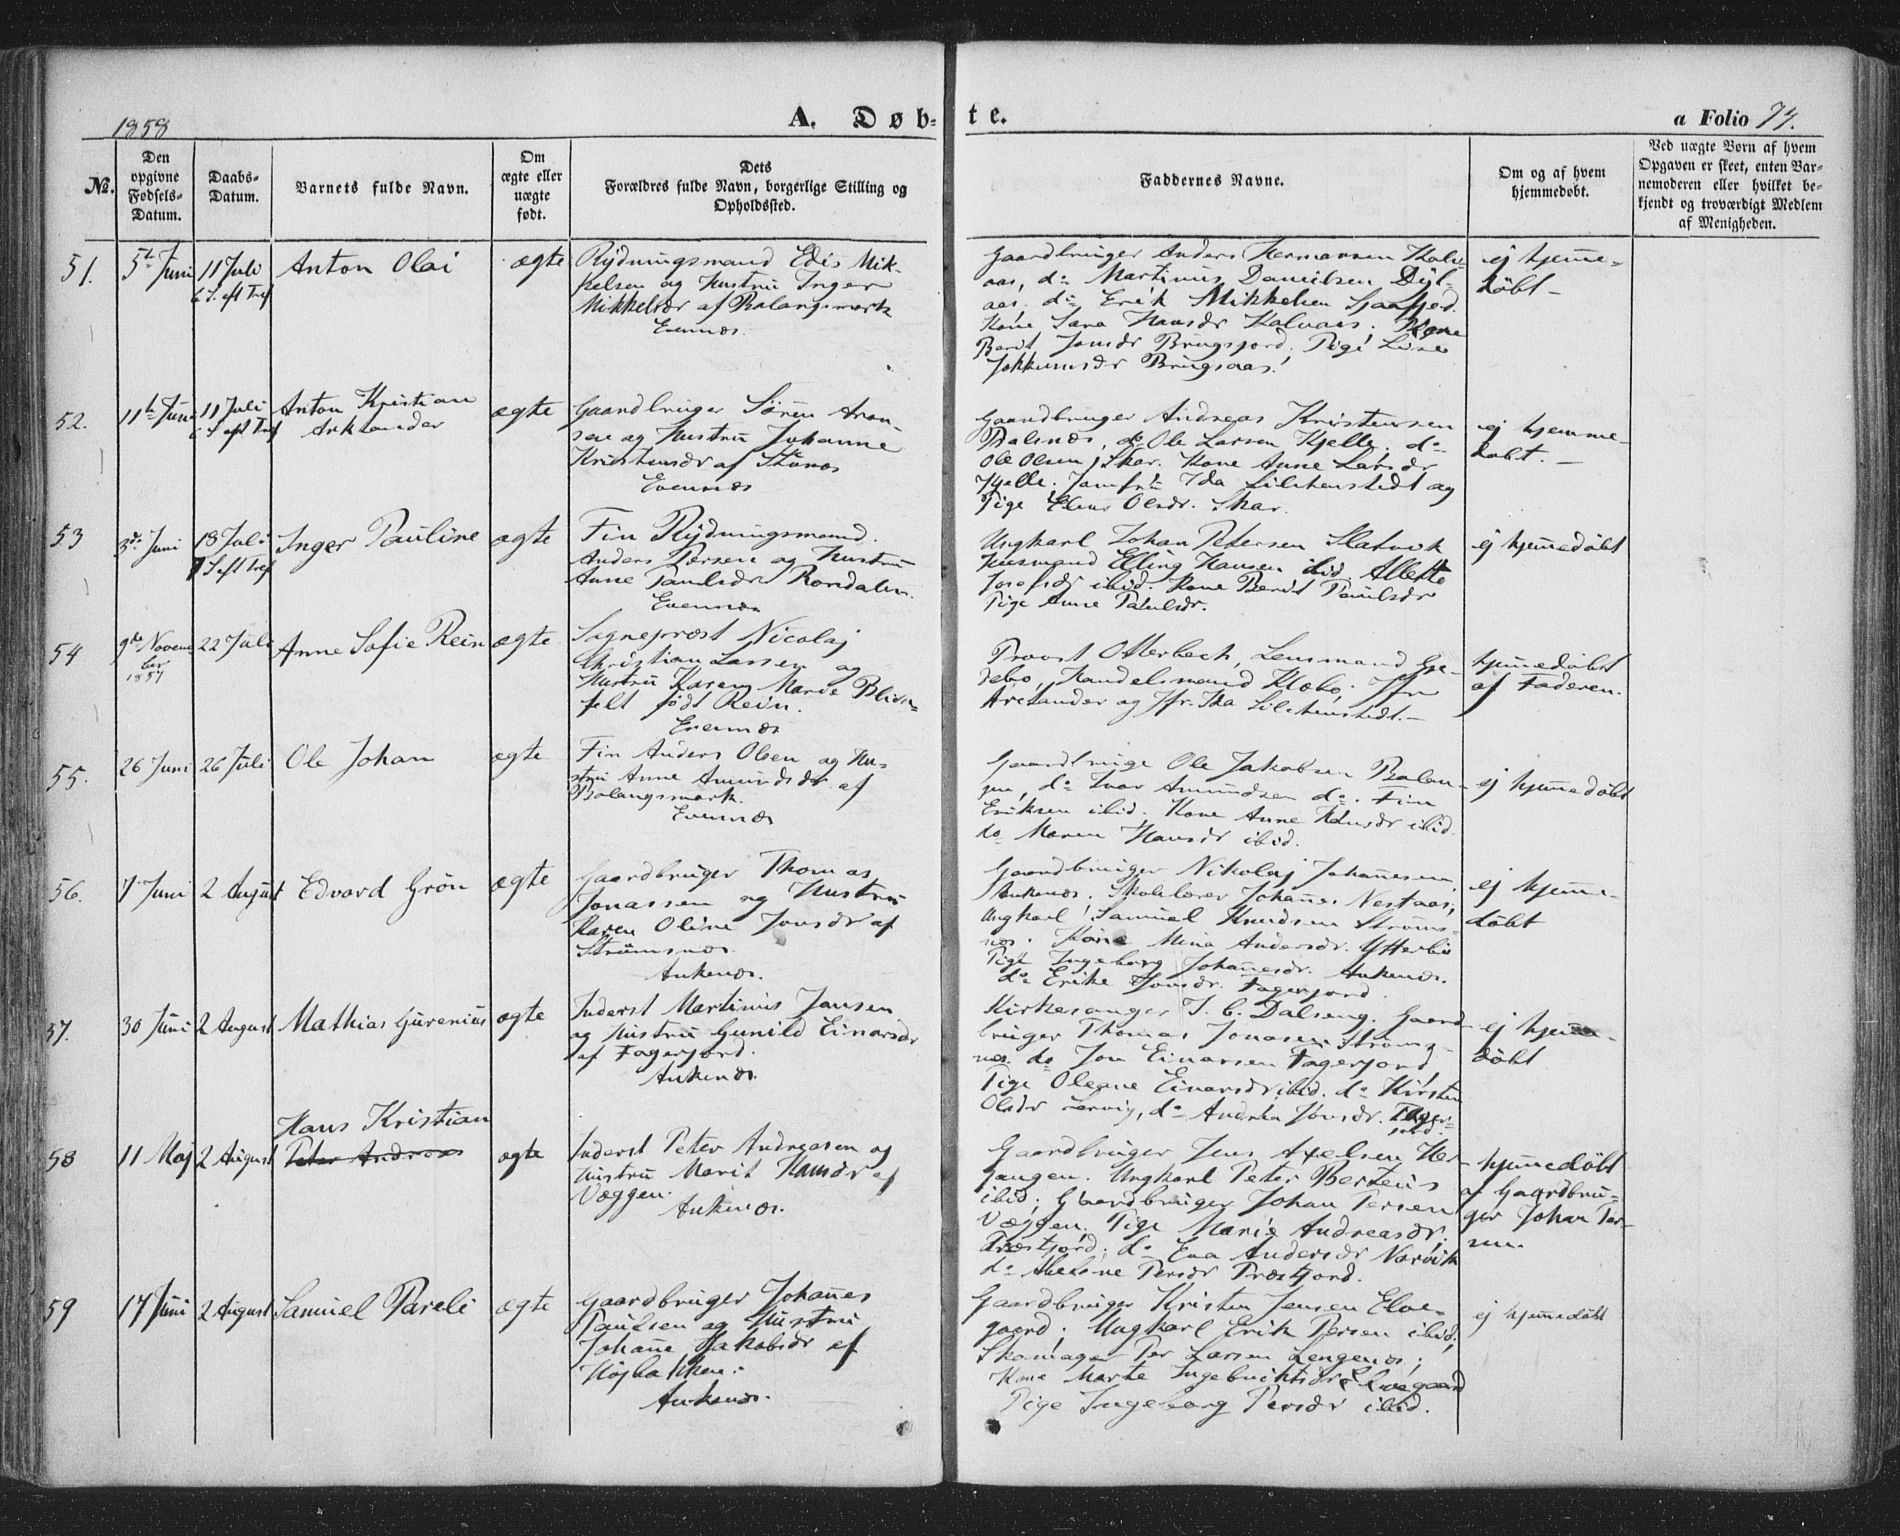 1858
A. Døb-
te.
a Folio 77.
№.
Den opgivne Fødsels-Datum.
Daabs-Datum.
Barnets fulde Navn.
Om ægte eller uægte født.
Dets Forældres fulde Navn, borgerlige Stilling og Opholdssted.
Faddernes Navne.
Om og af hvem hjemmedøbt.
Ved uægte Børn af hvem Opgaven er skeet, enten Bar-
nemoderen eller hvilket be-
kjendt og troværdigt Medlem
af Menigheden.
51. 5te Juni 11 Juli Anton Olai ægte
6 S. eft Tref
Rydningsmand Edis Mik-
kelsen og Hustru Inger
Mikkelsdr af Balangsmark
Evennes
Gaardbruger Anders Hermansen Kalv-
aas, do Martinus Danielsen Dyl-
aas, do Erik Mikkelsen
Kone Sara Hansdr Kalvaas. Kone
Berit Jonsdr Brugsfjord. Pige Lise
Jokkumsdr Brugsaas.
ej hjemme-
døbt
52. 11te Juni 11 Juli Anton Kristian ægte
6 S eft Tref Arklander
Gaardbruger Sören Aron-
sen og Hustru Johanne
Kristensdr af Stunes
Evennes
Gaardbruger Andreas Kristensen
Balsnes, do Ole Larsen Kjelle. do
Ole Olsen, Skar. Kone Anne Larsdr
Kjelle, Jomfru Ida Lilchenstedt og
Pige Olsdr. Skar.
ej hjemme-
døbt.
53 3de Juni 18 Juli Inger Pauline ægte
7 S eft Tref
Fin Rydningsmand.
Anders Persen og Hustru
Anne Paulsdr Romdalen.
Evennes
Ungkarl Johan Petersen Slatvik
Husmand Elling Hansen ibid. Allette
Josefsdr ibid. Kone Berit Paulsdr
Pige Anne Paulsdr.
ej hjemmedøbt
54 9de Novem 22 Juli Anne Sofie Rein ægte
ber
1857
Sognepræst Nicolaj
Christian Lassen og
Hustru Karen Marie Blixen-
felt født Rein.
Evennes
Provst Otterbech, Lensmand Gje-
debo, Handelsmand Klæbo, Jfr
Arctander og Jfr. Ida Lilchenstedt.
hjemmedøbt
af Faderen.
55. 26 Juni 26 Juli Ole Johan ægte
Fin Anders Olsen og Hu-
stru Anne Amundsdr af
Balangsmark.
Evennes
Gaardbruge Ole Jakobsen Balan-
gen, do Ivar Amundsen do. Fin
Eriksen ibid. Kone Anne ibid.
do Maren Hansdr ibid.
ej hjemmedøbt
56. 7 Juni 2 August Edvard Grön ægte
Gaardbruger Thomas
Jonassen og Hustru
Karen Oline Jonsdr af
Strömsnes.
Ankenes.
Gaardbruger Nikolaj Johannesen,
Ankenes, Skolelærer Johannes Nestaas,
Ungkarl Samuel Knudsen Ströms-
nes. Kone Mina Andersdr. Ytterbü
Pige Ingeborg Johannesdr. Ankenes.
do Erike Jonsdr. Fagerfjord.
ej hjemme-
døbt
57. 30 Juni 2 August Mathias Gurenius ægte
Inderst Martinus Jansen
og Hustru Gunild Einarsdr
af Fagerfjord.
Ankenes.
Kirkesanger I. C. Dalseng. Gaard-
bruger Thomas Jonasen Ströms-
nes. do Jon Einarsen Fagerfjord,
Pige Oleane Einarsdr ibid. do Kirsten
Olsdr Lervig, do Andrea Jonsdr. Fager-
fjord.
ej hjemme-
døbt
Hans Kristian
58 11 Maj 2 August Peter Andreas ægte
Inderst Peter Andreasen og
Hustru Marit Hansdr af
Væggen.
Ankenes.
Gaardbruger Jens Axelsen Her-
jangen. Ungkarl Peter Berteus
ibid; Gaardbruger Johan Persen
Væggen. Pige Marie Andreasdr,
Træstfjord; do Eva Andersdr Narvik
do Persdr Træsfjord.
hjemmedøbt
af Gaardbru-
ger Johan Per-
sen.
59 17 Juni 2 August Samuel Pareli ægte
Gaardbruger Johannes
Paulsen og Hustru
Johanne Jakobsdr af
Højbakken.
Ankenes.
Gaardbruger Kristen Jensen Elve-
gaard. Ungkarl Erik Persen ibid;
Skomager Per Larsen Lengenes;
Kone Marte Ingebrichtsdr Elvegaard
Pige Ingeborg Persdr ibid.
ej hjemmedøbt